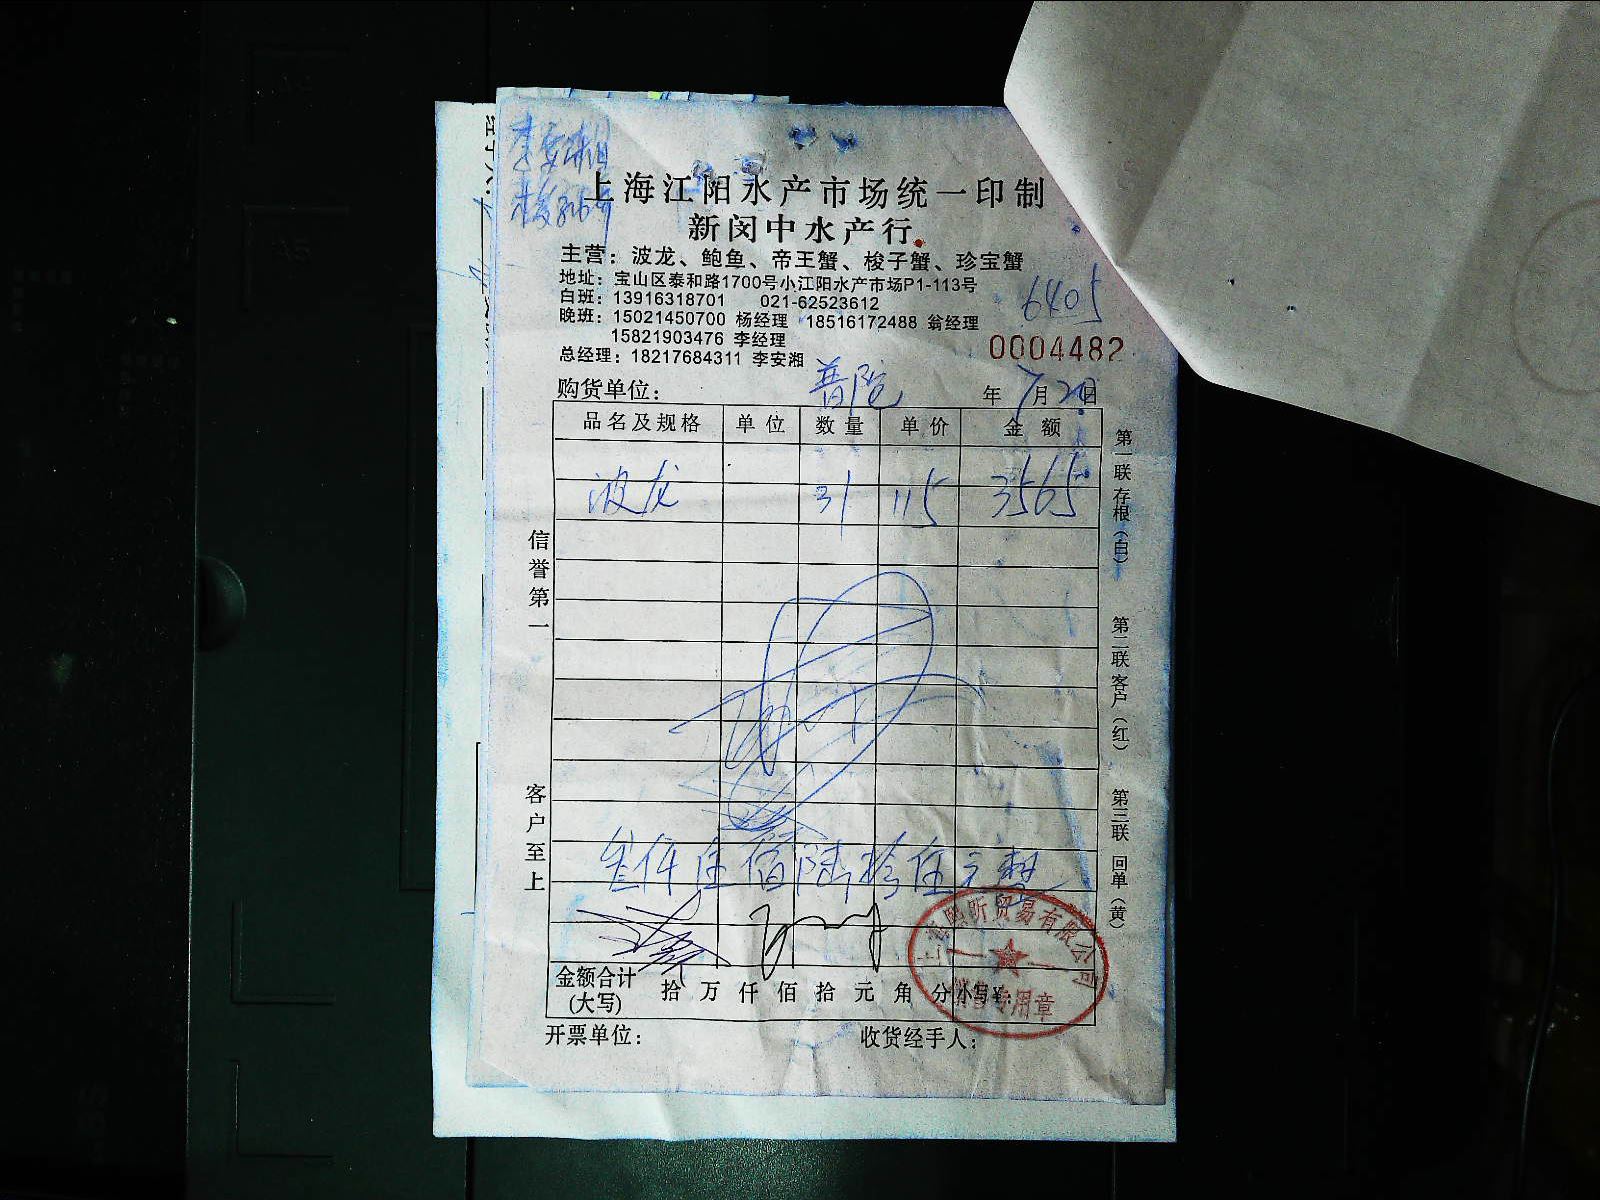 上海江阳水产市场统一印制
新闵中水产行
主营：波龙、鲍鱼、帝王蟹、梭子蟹、珍宝蟹
地址：宝山区泰和路1700号小江阳水产市场P1-113号
白班：13916318701 021-62523612
6405
晚班：15021450700 杨经理 18516172488 翁经理
15821903476 李经理
0004482
总经理：18217684311 李安湘
购货单位： 普陀 年 7月 日
品名及规格 单位 数量 单价 金额
波龙 31 115 3565
叁仟伍佰陆拾伍元整
金额合计
(大写) 拾 万 仟 佰 拾 元 角 分 小写¥:
开票单位： 收货经手人：
信誉第一
客户至上
第一联 存根（白）
第二联 客户（红）
第三联 回单（黄）
贸易有限公司
专用章